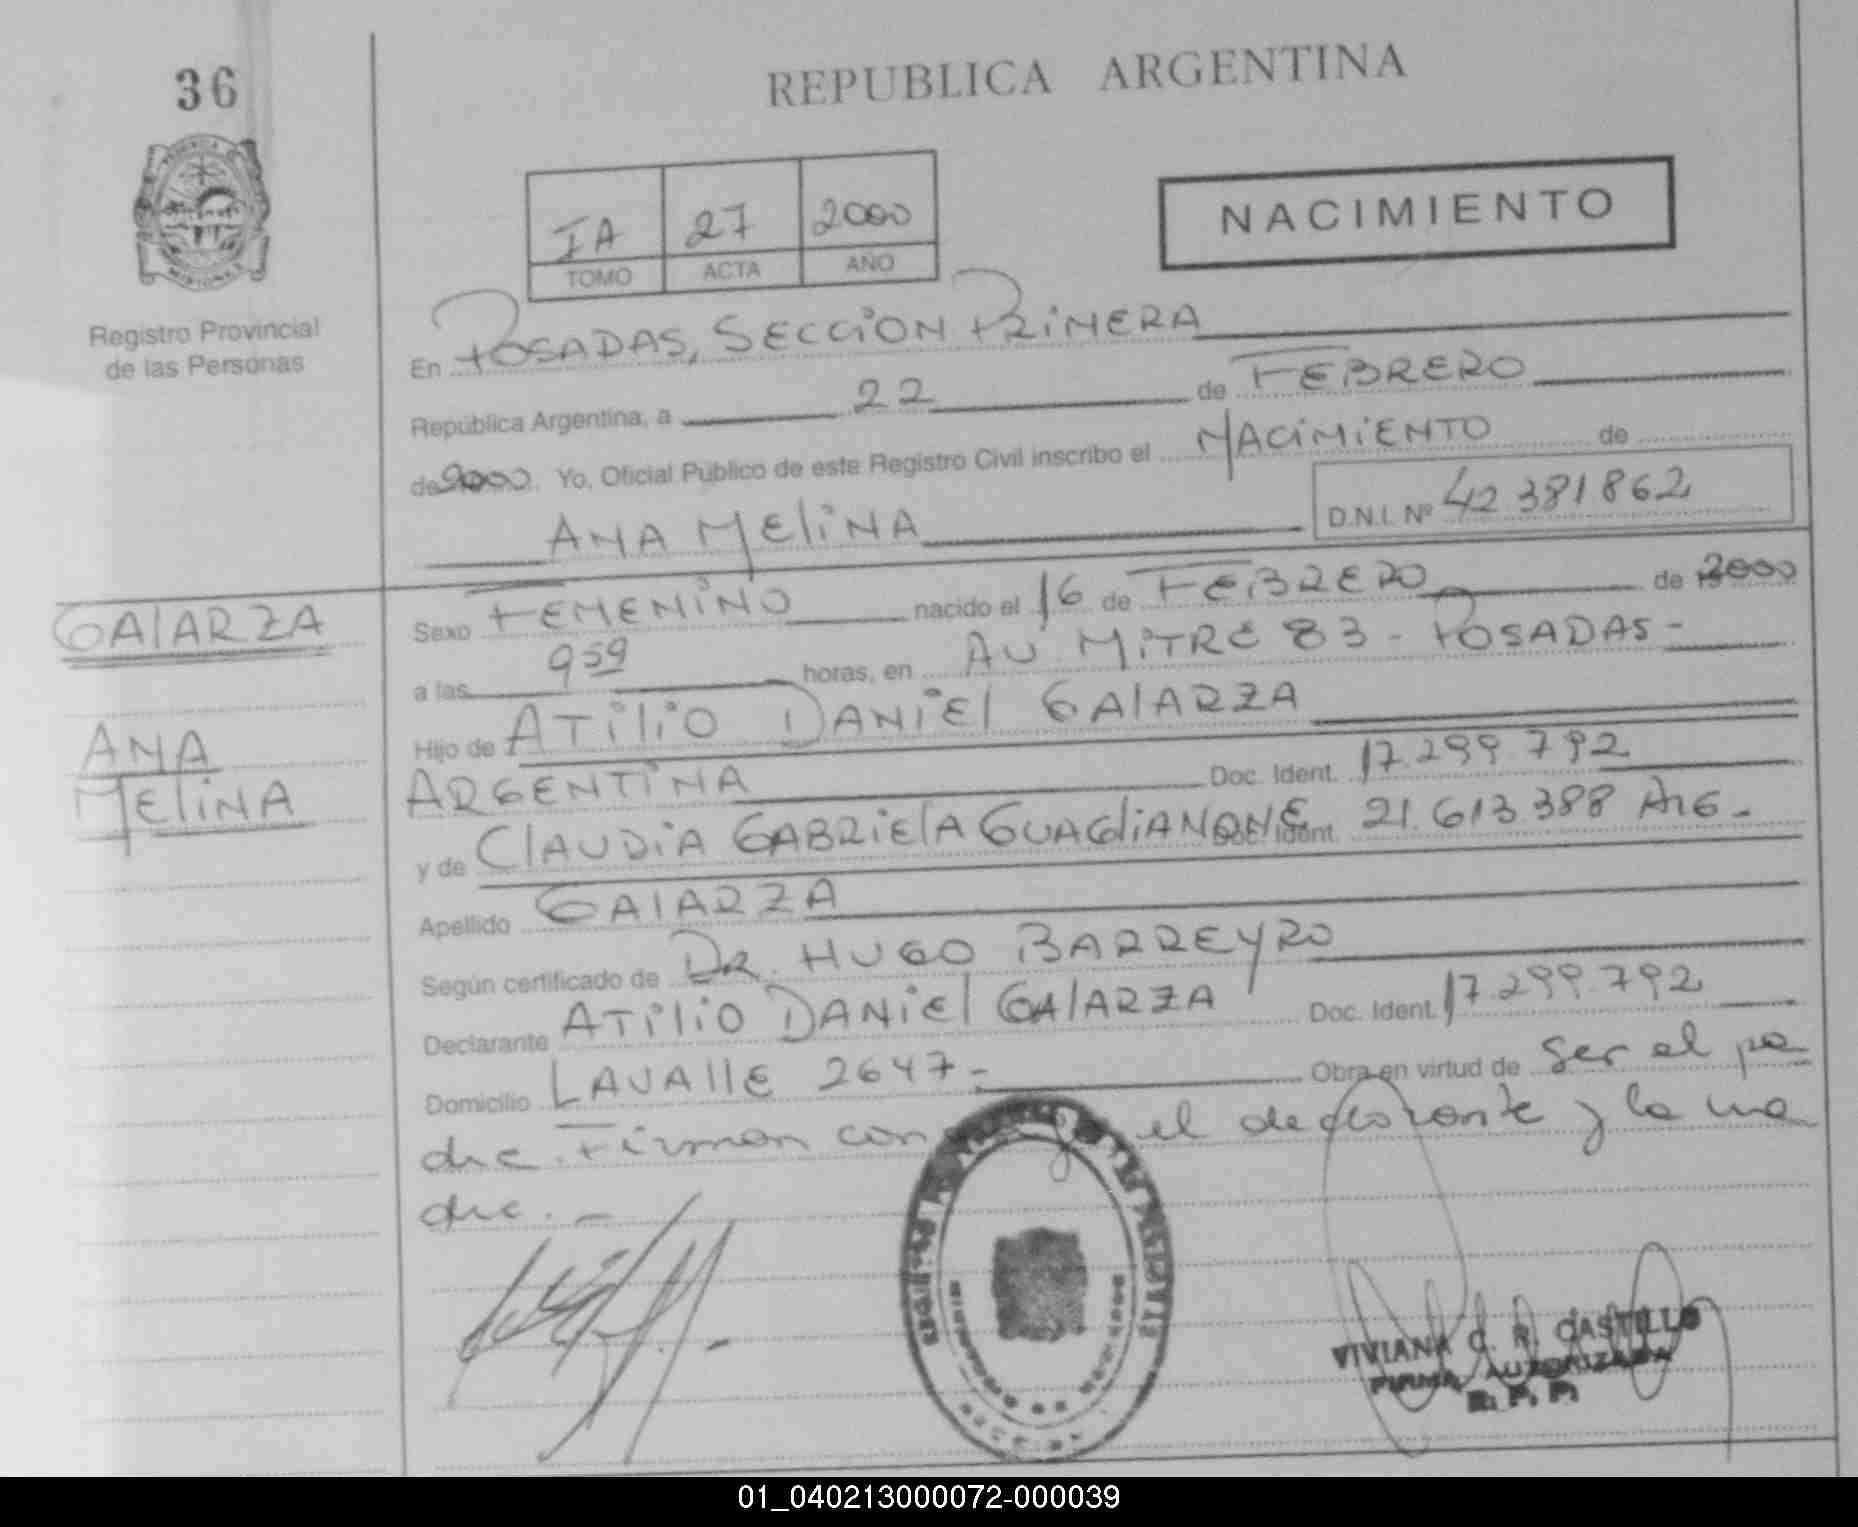 36
REPUBLICA ARGENTINA
IA 27 2000
TOMO ACTA AÑO
NACIMIENTO
Registro Provincial
de las Personas
En POSADAS, SECCION PRIMERA
República Argentina, a 22 de FEBRERO
de 2000. Yo, Oficial Público de este Registro Civil inscribo el NACIMIENTO de
ANA MELINA D.N.I. Nº 42 381862
GALARZA
ANA
MELINA
Sexo FEMENINO nacido el 16 de FEBRERO de 2000
a las 9 59 horas, en AV. MITRE 83 - POSADAS -
Hijo de ATILIO DANIEL GALARZA
ARGENTINA Doc. Ident. 17.299.792
y de CLAUDIA GABRIELA GUAGLIANONE Doc. Ident. 21.613.388 ARG -
Apellido GALARZA
Según certificado de DR. HUGO BARREYRO
Declarante ATILIO DANIEL GALARZA Doc. Ident. 17.299.792
Domicilio LAVALLE 2647 - Obra en virtud de ser el pa
dre. Firman con el declarante y la ma
dre. -
VIVIANA C. R. CASTILLO
FIRMA AUTORIZADA
R. P. P.
01_040213000072-000039